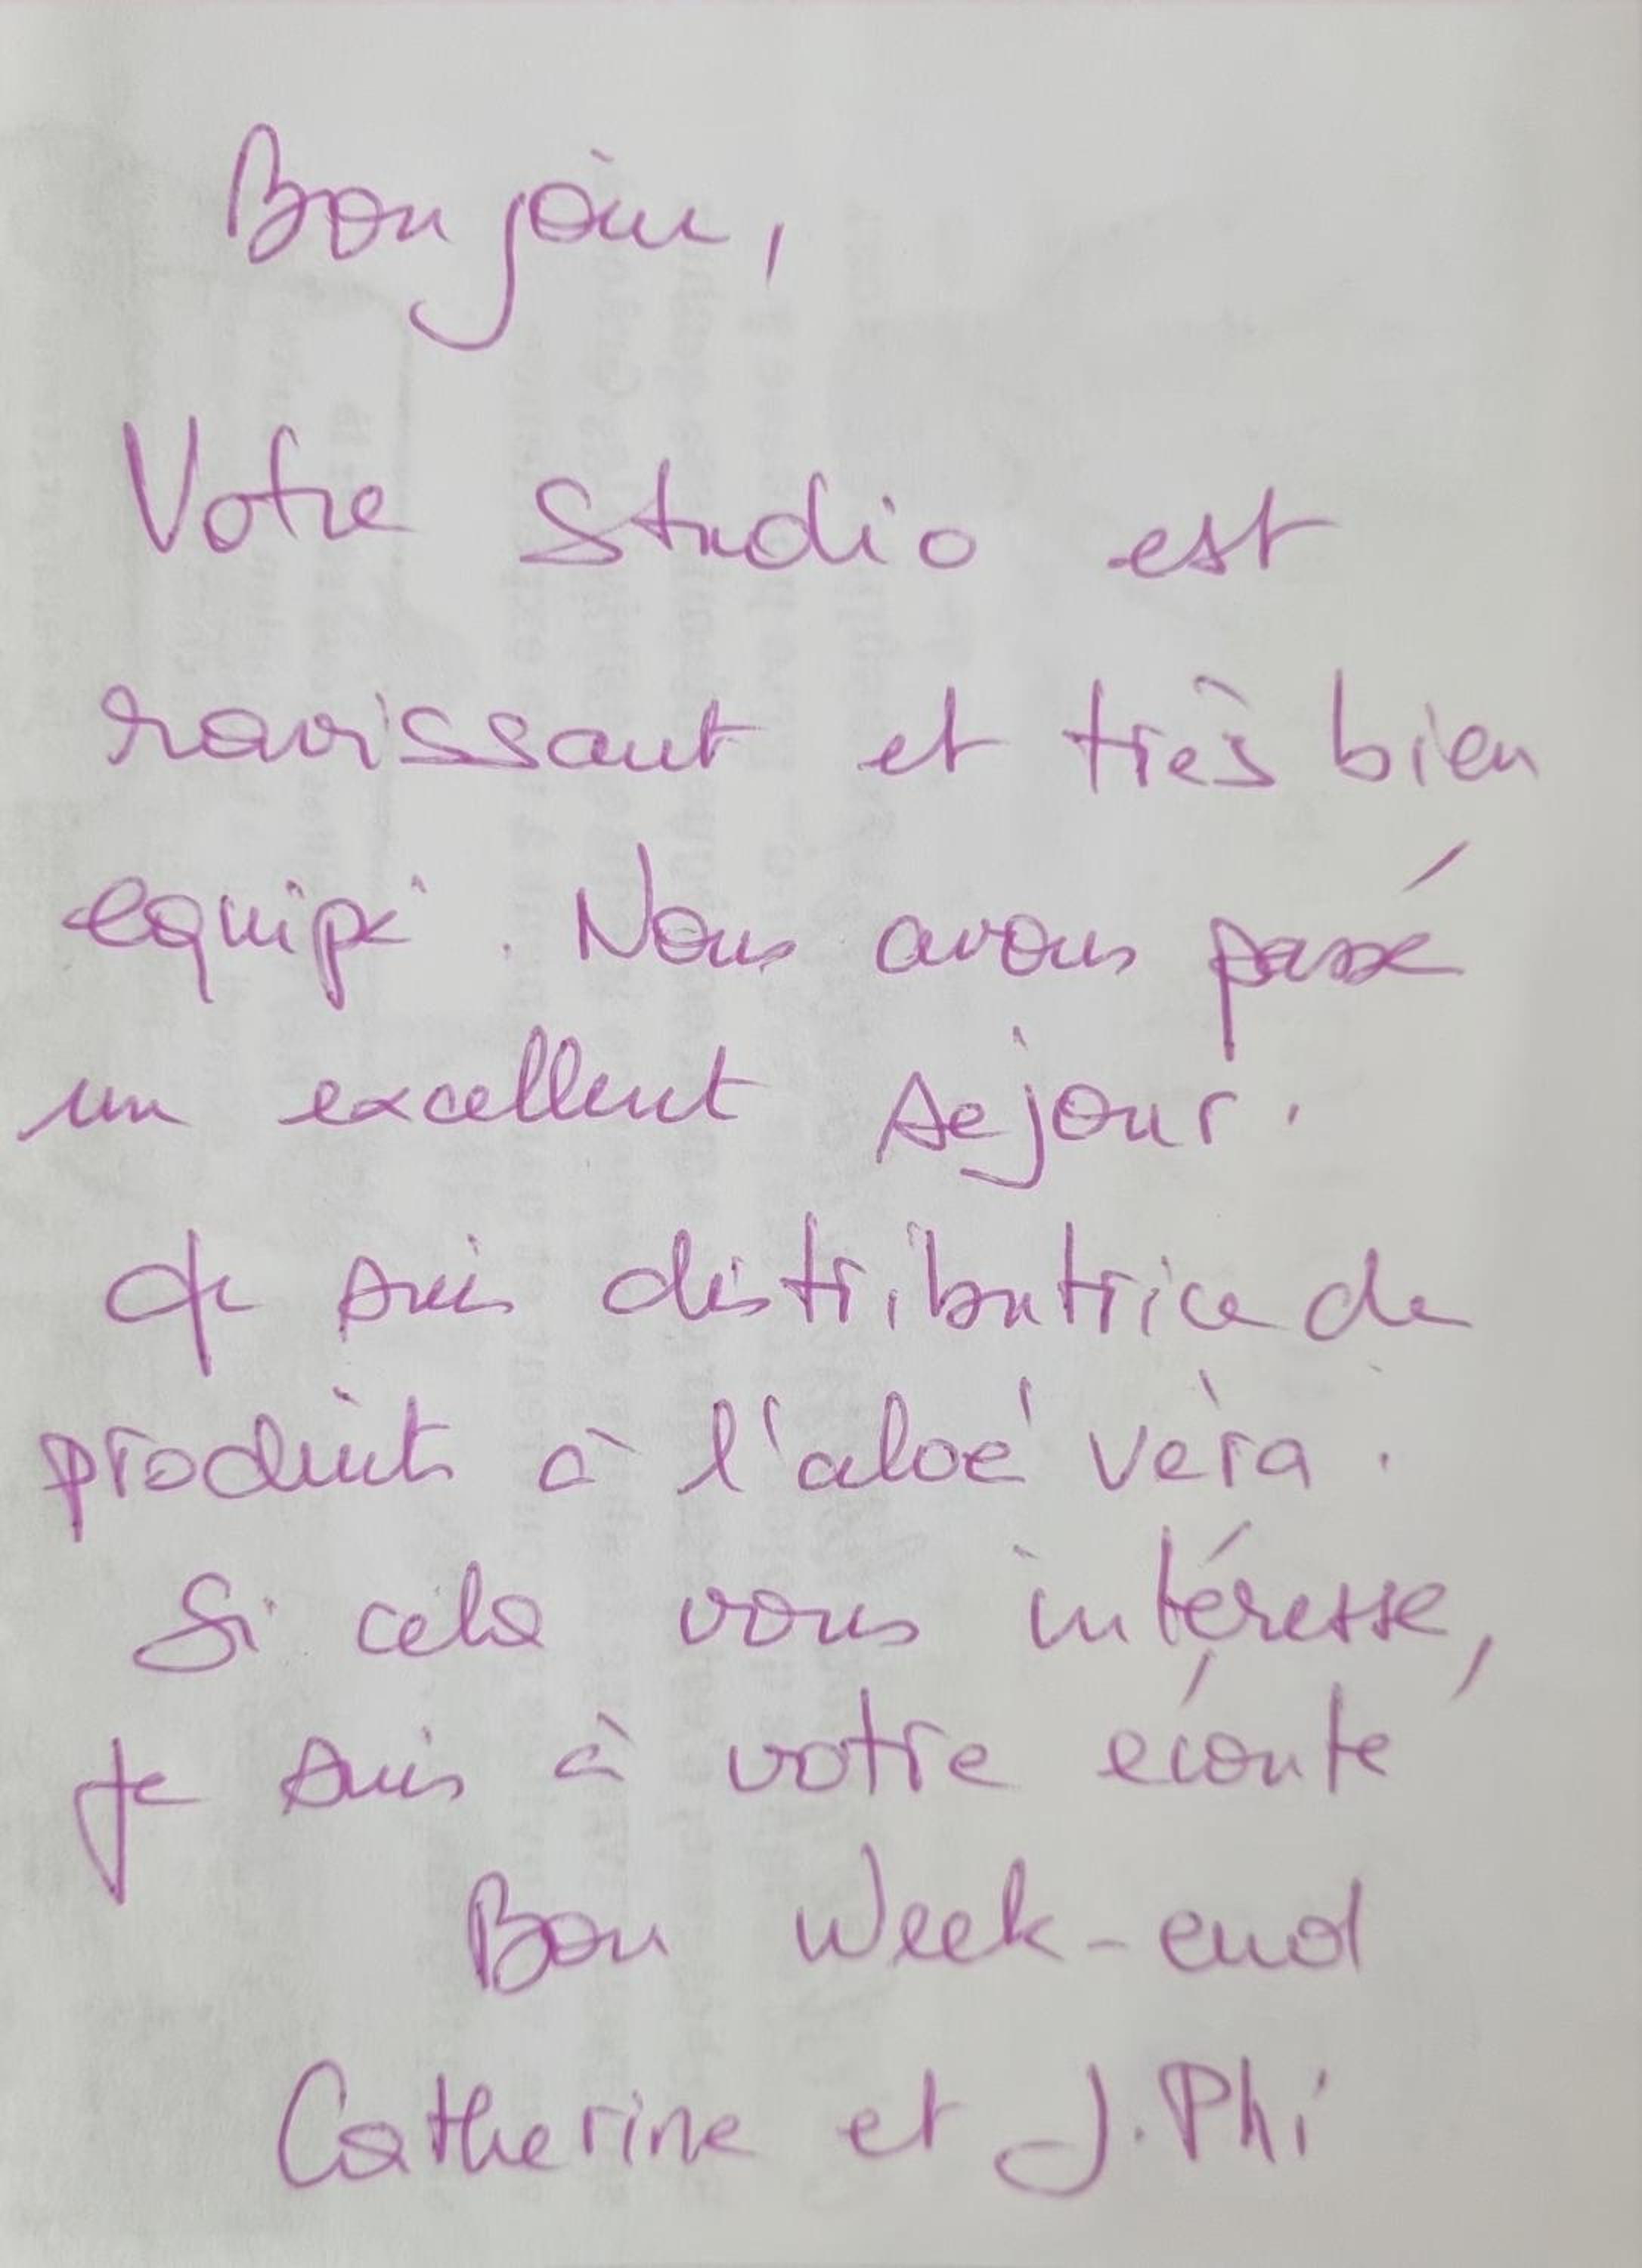 Bonjour,
Votre Studio est
ravissant et très bien
equipé. Nous avons passé
un excellent sejour.
Je suis distributrice de
produits à l'aloé vèra.
Si cela vous intéresse,
je suis à votre écoute
Bon Week-end
Catherine et J.Phi